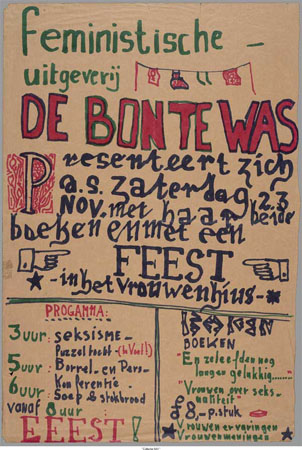 feministische -
uitgeverij
DE BONTE WAS
Presenteert zich
a.s. zaterdag 23
NOV. met haar beide
boeken en met een
FEEST
- in het vrouwenhuis -
PROGAMMA:
3 uur: seksisme -
Puzzeltocht -
5 uur: Borrel en Pers-
Konferentie -
6 uur Soep & stokbrood
vanaf 8 uur
FEEST!
BOEKEN
"En ze leefden nog
lang en gelukkig......"
"Vrouwen over seks-
ualiteit"
ƒ8,- p. stuk
Vrouwen ervaringen
Vrouwenmeningen